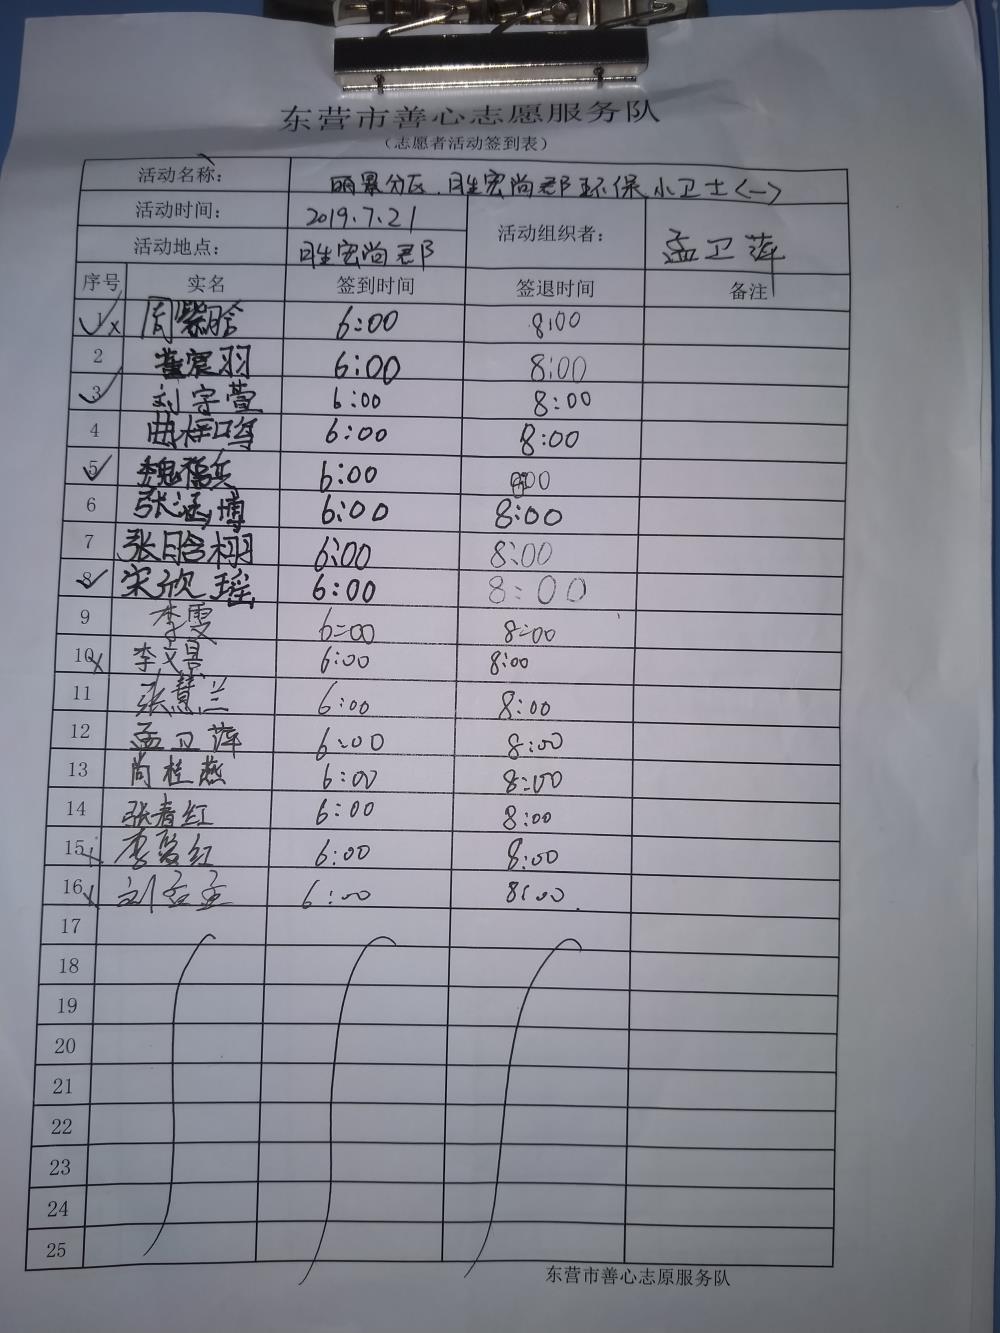 东营市善心志愿服务队
（志愿者活动签到表）
活动名称： 丽景分区、胜宏尚郡环保小卫士<一>
活动时间： 2019.7.21 活动组织者： 孟卫萍
活动地点： 胜宏尚郡
序号 实名 签到时间 签退时间 备注
1 周紫晗 6:00 8:00
2 董宸羽 6:00 8:00
3 刘宇萱 6:00 8:00
4 曲梓鸣 6:00 8:00
5 魏福兵 6:00 8:00
6 张涵博 6:00 8:00
7 张晗栩 6:00 8:00
8 宋欣瑶 6:00 8:00
9 李雯 6:00 8:00
10 李文昌 6:00 8:00
11 张慧兰 6:00 8:00
12 孟卫萍 6:00 8:00
13 尚桂燕 6:00 8:00
14 张春红 6:00 8:00
15 李红 6:00 8:00
16 刘孟孟 6:00 8:00
17
18
19
20
21
22
23
24
25
东营市善心志原服务队